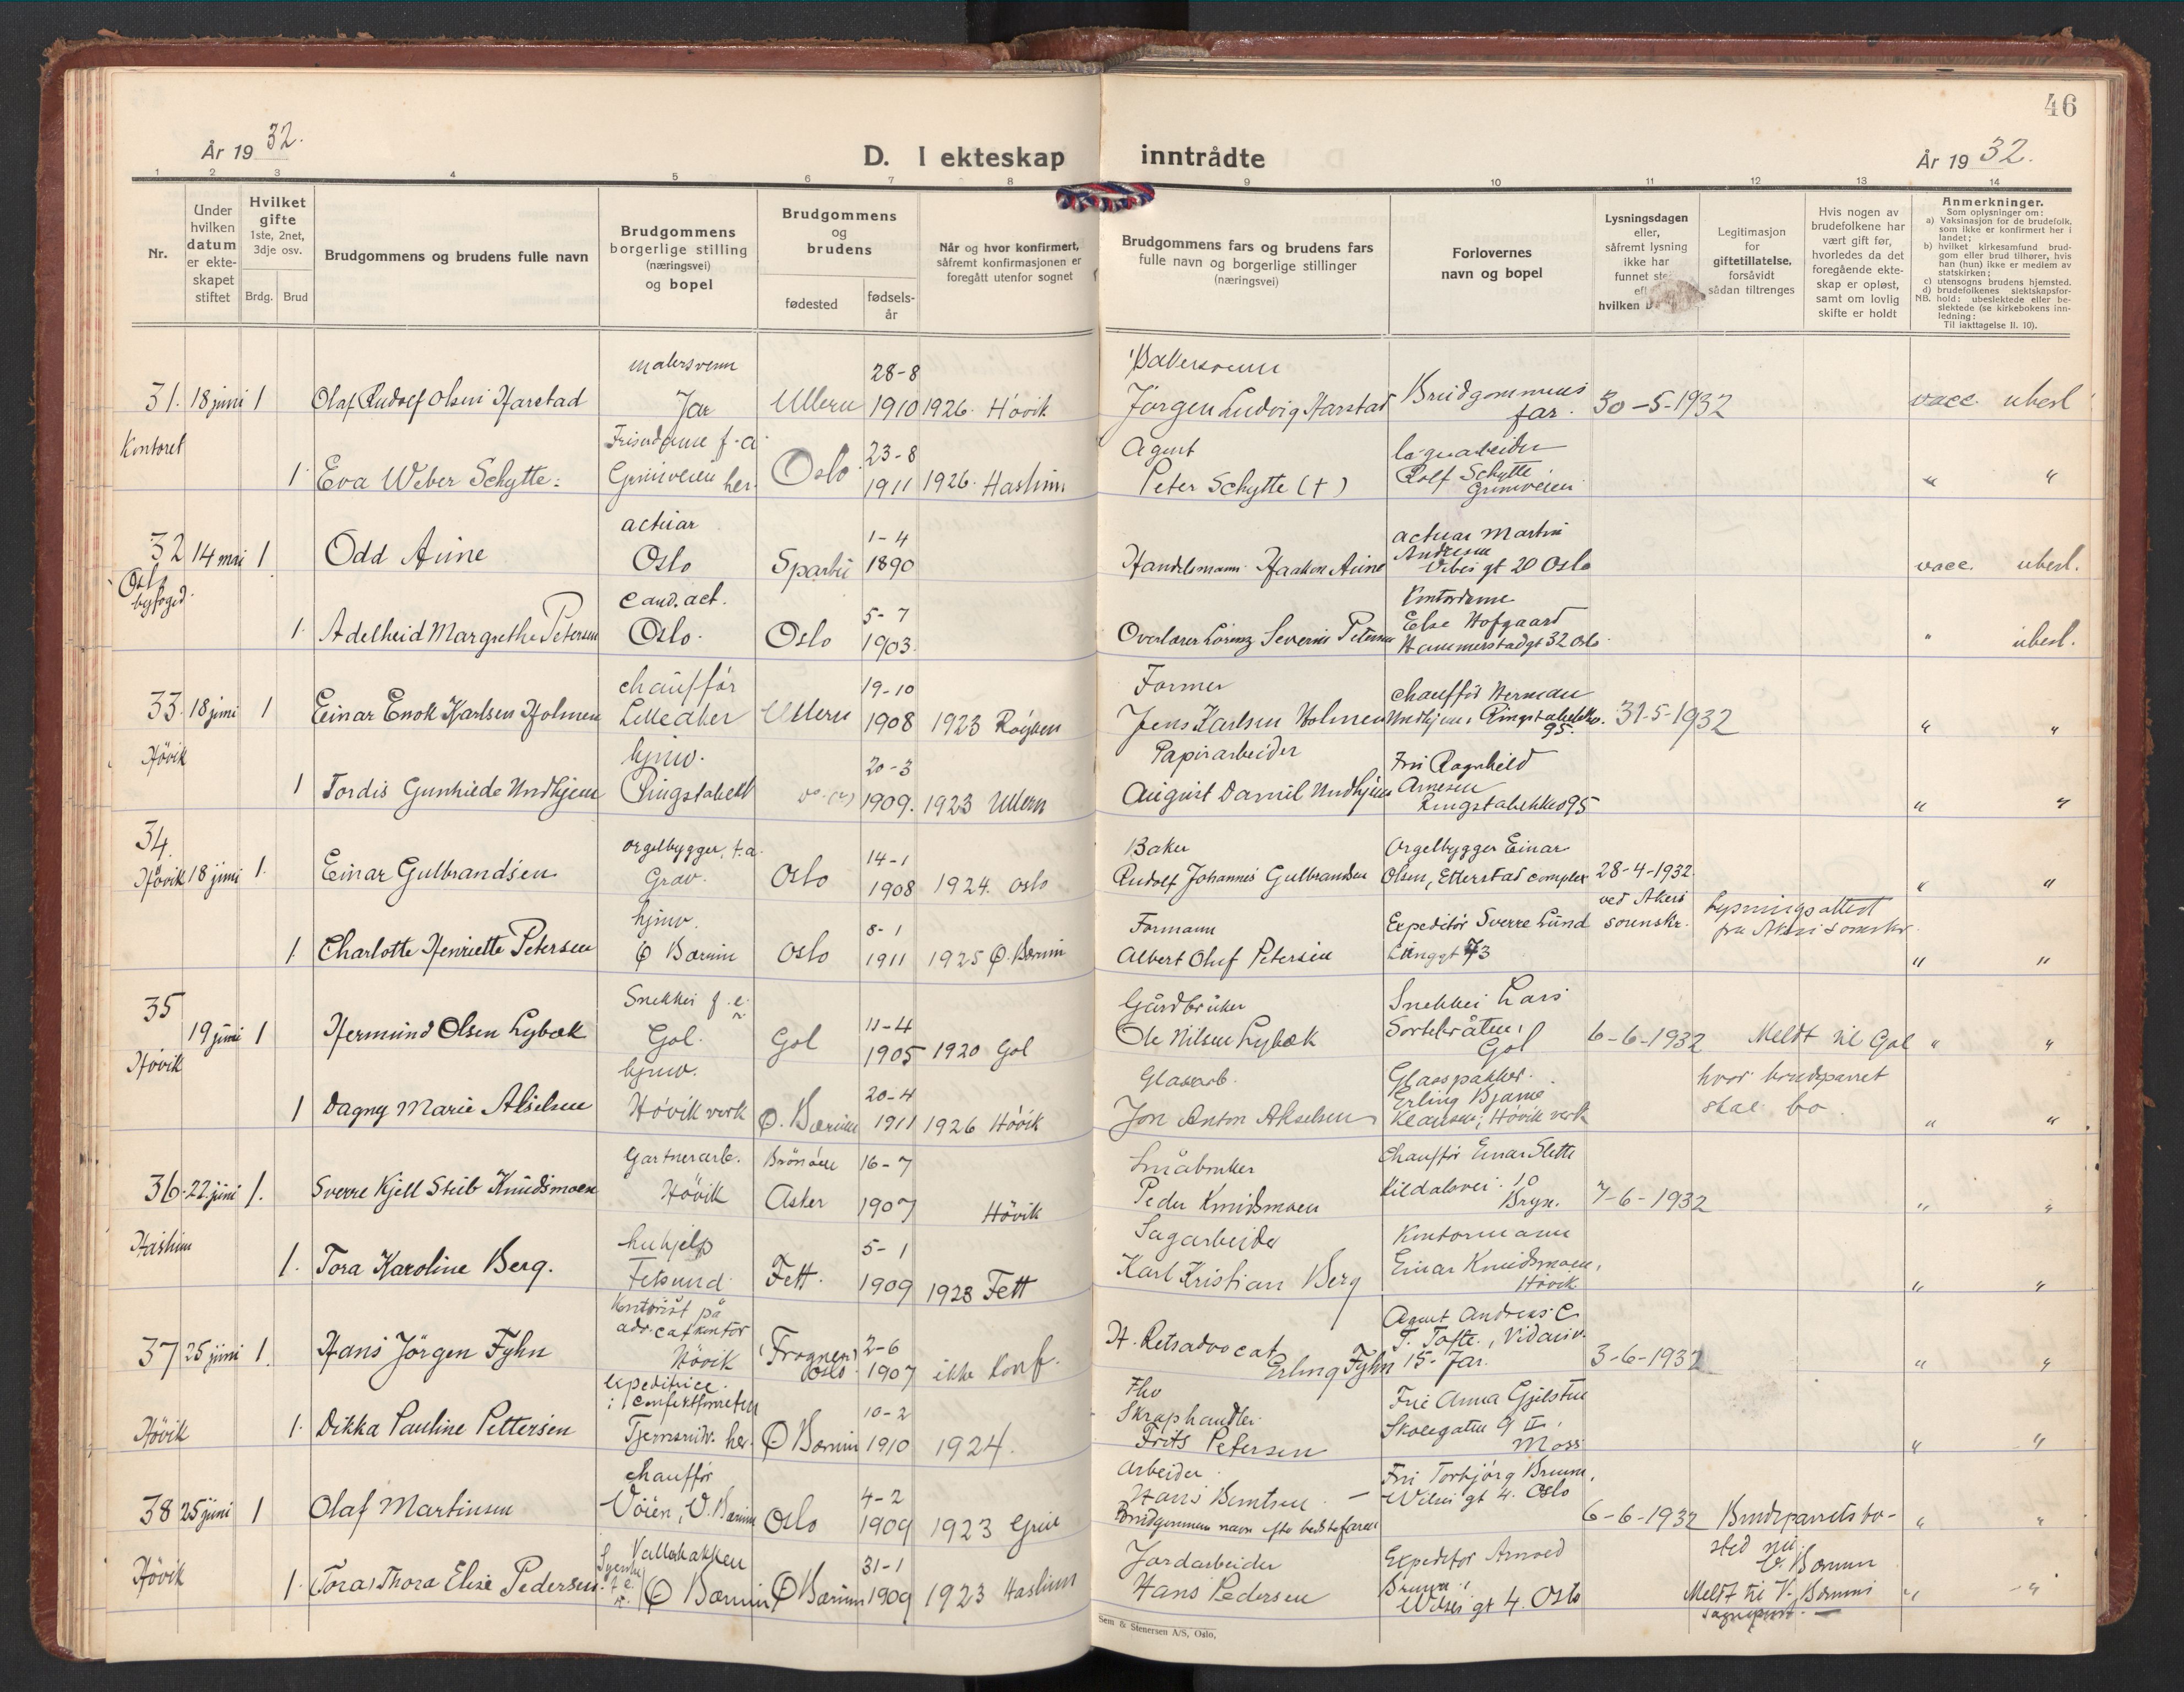 46
År 1932.
D. I ekteskap inntrådte
År 1932.
1 2 3 4 5 6 7 8 9 10 11 12 13 14
Nr.
Under hvilken datum er ekteskapet stiftet
Hvilket gifte 1ste, 2net, 3dje osv.
Brdg. Brud
Brudgommens og brudens fulle navn
Brudgommens borgerlige stilling (næringsvei) og bopel
Brudgommens og brudens
fødested
fødsels-år
Når og hvor konfirmert, såfremt konfirmasjonen er foregått utenfor sognet
Brudgommens fars og brudens fars fulle navn og borgerlige stillinger (næringsvei)
Forlovernes navn og bopel
Lysningsdagen eller, såfremt lysning ikke har funnet
hvilken
Legitimasjon for giftetillatelse, forsåvidt sådan tiltrenges
Hvis nogen av brudefolkene har vært gift før, hvorledes da det foregående ekteskap er opløst, samt om lovlig skifte er holdt
Anmerkninger.
Som oplysninger om:
a) Vaksinasjon for de brudefolk, som ikke er konfirmert her i landet;
b) hvilket kirkesamfund brudgom eller brud tilhører, hvis han (hun) ikke er medlem av statskirken;
c) utensogns brudens hjemsted.
d) brudefolkenes slektskapsforhold: ubeslektede eller beslektede (se kirkebokens innledning:
NB.
Til iakttagelse II. 10).
malersvenn 28-8 Bakersvenn
31. 18 juni 1 Olaf Rudolf Olsen Harstad Jar Ullern 1910 1926. Høvik Jørgen Ludvig Harstad Brudgommens far. 30-5-1932 vacc. ubesl.
Kontoret Frisørdame f.a. 23-8 Agent
1 Eva Weber Schytte. Griniveien her. Oslo 1911 1926. Haslum Peter Schytte (†) Rolf Schytte Griniveien " "
actuar 1-4 actuar Martin Andresen
32 14 mai 1 Odd Aune Oslo Sparbu 1890 Handelsmann Haakon Aune Vibes gt 20 Oslo vacc. ubesl.
Oslo byfoged. cand. act. 5-7 Kontordame Else Hofgaard
1. Adelheid Margrethe Petersen Oslo. Oslo 1903. Overlærer Lorenz Severin Petersen Hammerstadgt 32 Oslo " ubesl.
chauffør 19-10 Former chauffør Herman
33. 18 juni 1 Einar Enok Karlsen Holmen Lilleaker Ullern 1908 1923 Røyken Jens Karlsen Holmen Undhjem, Ringstabekkv. 95. 31-5-1932 " "
Høvik hjmv. 20-3 Papirarbeider Fru Ragnhild Arnesen
1 Tordis Gunhilde Undhjem Ringstabekk 1909. 1923 Ullern August Daniel Undhjem Ringstabekkv 95 " "
34. orgelbygger, f.a. 14-1 Baker Orgelbygger Einar
Høvik 18 juni 1. Einar Gulbrandsen Grav. Oslo 1908 1924. Oslo Rudolf Johannes Gulbrandsen Olsen, Etterstad complex 28-4-1932. " "
hjmv. 8-1 Formann Expeditør Sverre Lund ved Akers sognskr. Lysningsattest fra Akers
1. Charlotte Henriette Petersen Ø Bærum Oslo 1911 1925 Ø. Bærum Albert Oluf Petersen Langgt 73 " "
35 Snekker 11-4 Gårdbruker Snekker Lars
19 juni 1 Hermund Olsen Lybæk Gol. Gol 1905 1920 Gol Ole Nilsen Lybæk Sortebråten, Gol 6-6-1932 Meldt til Gol " "
Høvik hjmv. 20-4 Glassarb. Glasspakker Erling Bjarne hvor brudeparret
1 Dagny Marie Akselsen Høvik verk Ø. Bærum 1911 1926 Høvik Jon Anton Akselsen Klausen, Høvik verk skal bo. " "
Gartnerarb. Brønøen 16-7 Småbruker Chauffør Einar Slette
36. 22 juni 1. Sverre Kjell Steib Knudsmoen Høvik Asker 1907 Høvik Peder Knudsmoen Kildalsvei. 10 Bryn. 7-6-1932 " "
Haslum huhjelp 5-1 Sagarbeider Kontormann
1. Tora Karoline Berg. Fetsund. Fett. 1909 1923 Fett Karl Kristian Berg Einar Knudsmoen, Høvik " "
Kontorist på advocatkontor 2-6 H. Retsadvocat Agent Andreas C.
37 25 juni 1. Hans Jörgen Fyhn Høvik (Frogner) Oslo. 1907 ikke konf. Erling Fyhn T. Tofte, Vidarsv. 15-Jar. 3-6-1932 " "
expeditrice i 10-2 Fhv Skraphandler Frk Anna Gjelsten
Høvik 1. Dikka Pauline Pettersen Tjernsrudv. her. Ø Bærum 1910 1924. Frits Petersen Skolegaten 9 II, Moss " "
chauffør 4-2 Arbeider Fru Torbjørg Bruun,
38 25 juni 1 Olaf Martinsen Vøien, V. Bærum Oslo 1909 1923 Hans Berntsen. – Wilses gt 4. Oslo 6-6-1932 Brudeparrets bo- " "
Brudgommens navn efter bestefaren sted nu V. Bærum
Høvik Vallebakken 31-1 Jordarbeider Expeditør Arnold
1. (Tora) Thora Elise Pedersen Ø Bærum Ø Bærum 1909 1923 Haslum Hans Pedersen Bruun, Wilses gt 4. Oslo Meldt til V. Bærum sogneprest. – " "
Sem & Stenersen A/S, Oslo,